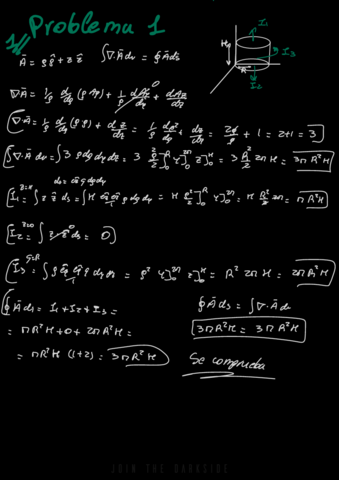 1) Problema 1
I₁
H
I₃
R
I₂
Ā = ρρ̂ + zẑ   ∫∇·Ā dv = ∮Ā ds̄
∇·Ā = 1/ρ d/dρ (ρ Aρ) + 1/ρ dAφ/dφ + dAz/dz
∇·Ā = 1/ρ d/dρ (ρρ) + dz/dz = 1/ρ dρ²/dρ + dz/dz = 2ρ/ρ + 1 = 2+1 = 3
∫∇·Ā dv = ∫3 ρ dρ dφ dz = 3 ρ²/2]₀ᴿ φ]₀²ᴨ z]₀ᴴ = 3 R²/2 2π H = 3πR²H
I₁ z=H = ∫ z ẑ ds = ∫ H ρ dρ dφ = H ρ²/2]₀ᴿ φ]₀²ᴨ = H R²/2 2π = πR²H
I₂ z=0 = ∫ z ẑ ds = 0
I₃ ρ=R = ρ² φ]₀²ᴨ z]₀ᴴ = R² 2π H = 2πR²H
∮Ā ds = I₁ + I₂ + I₃ =
= πR²H + 0 + 2πR²H =
= πR²H (1+2) = 3πR²H
∮Ā ds = ∫∇·Ā dv
3πR²H = 3πR²H
Se comprueba
JOIN THE DARKSIDE